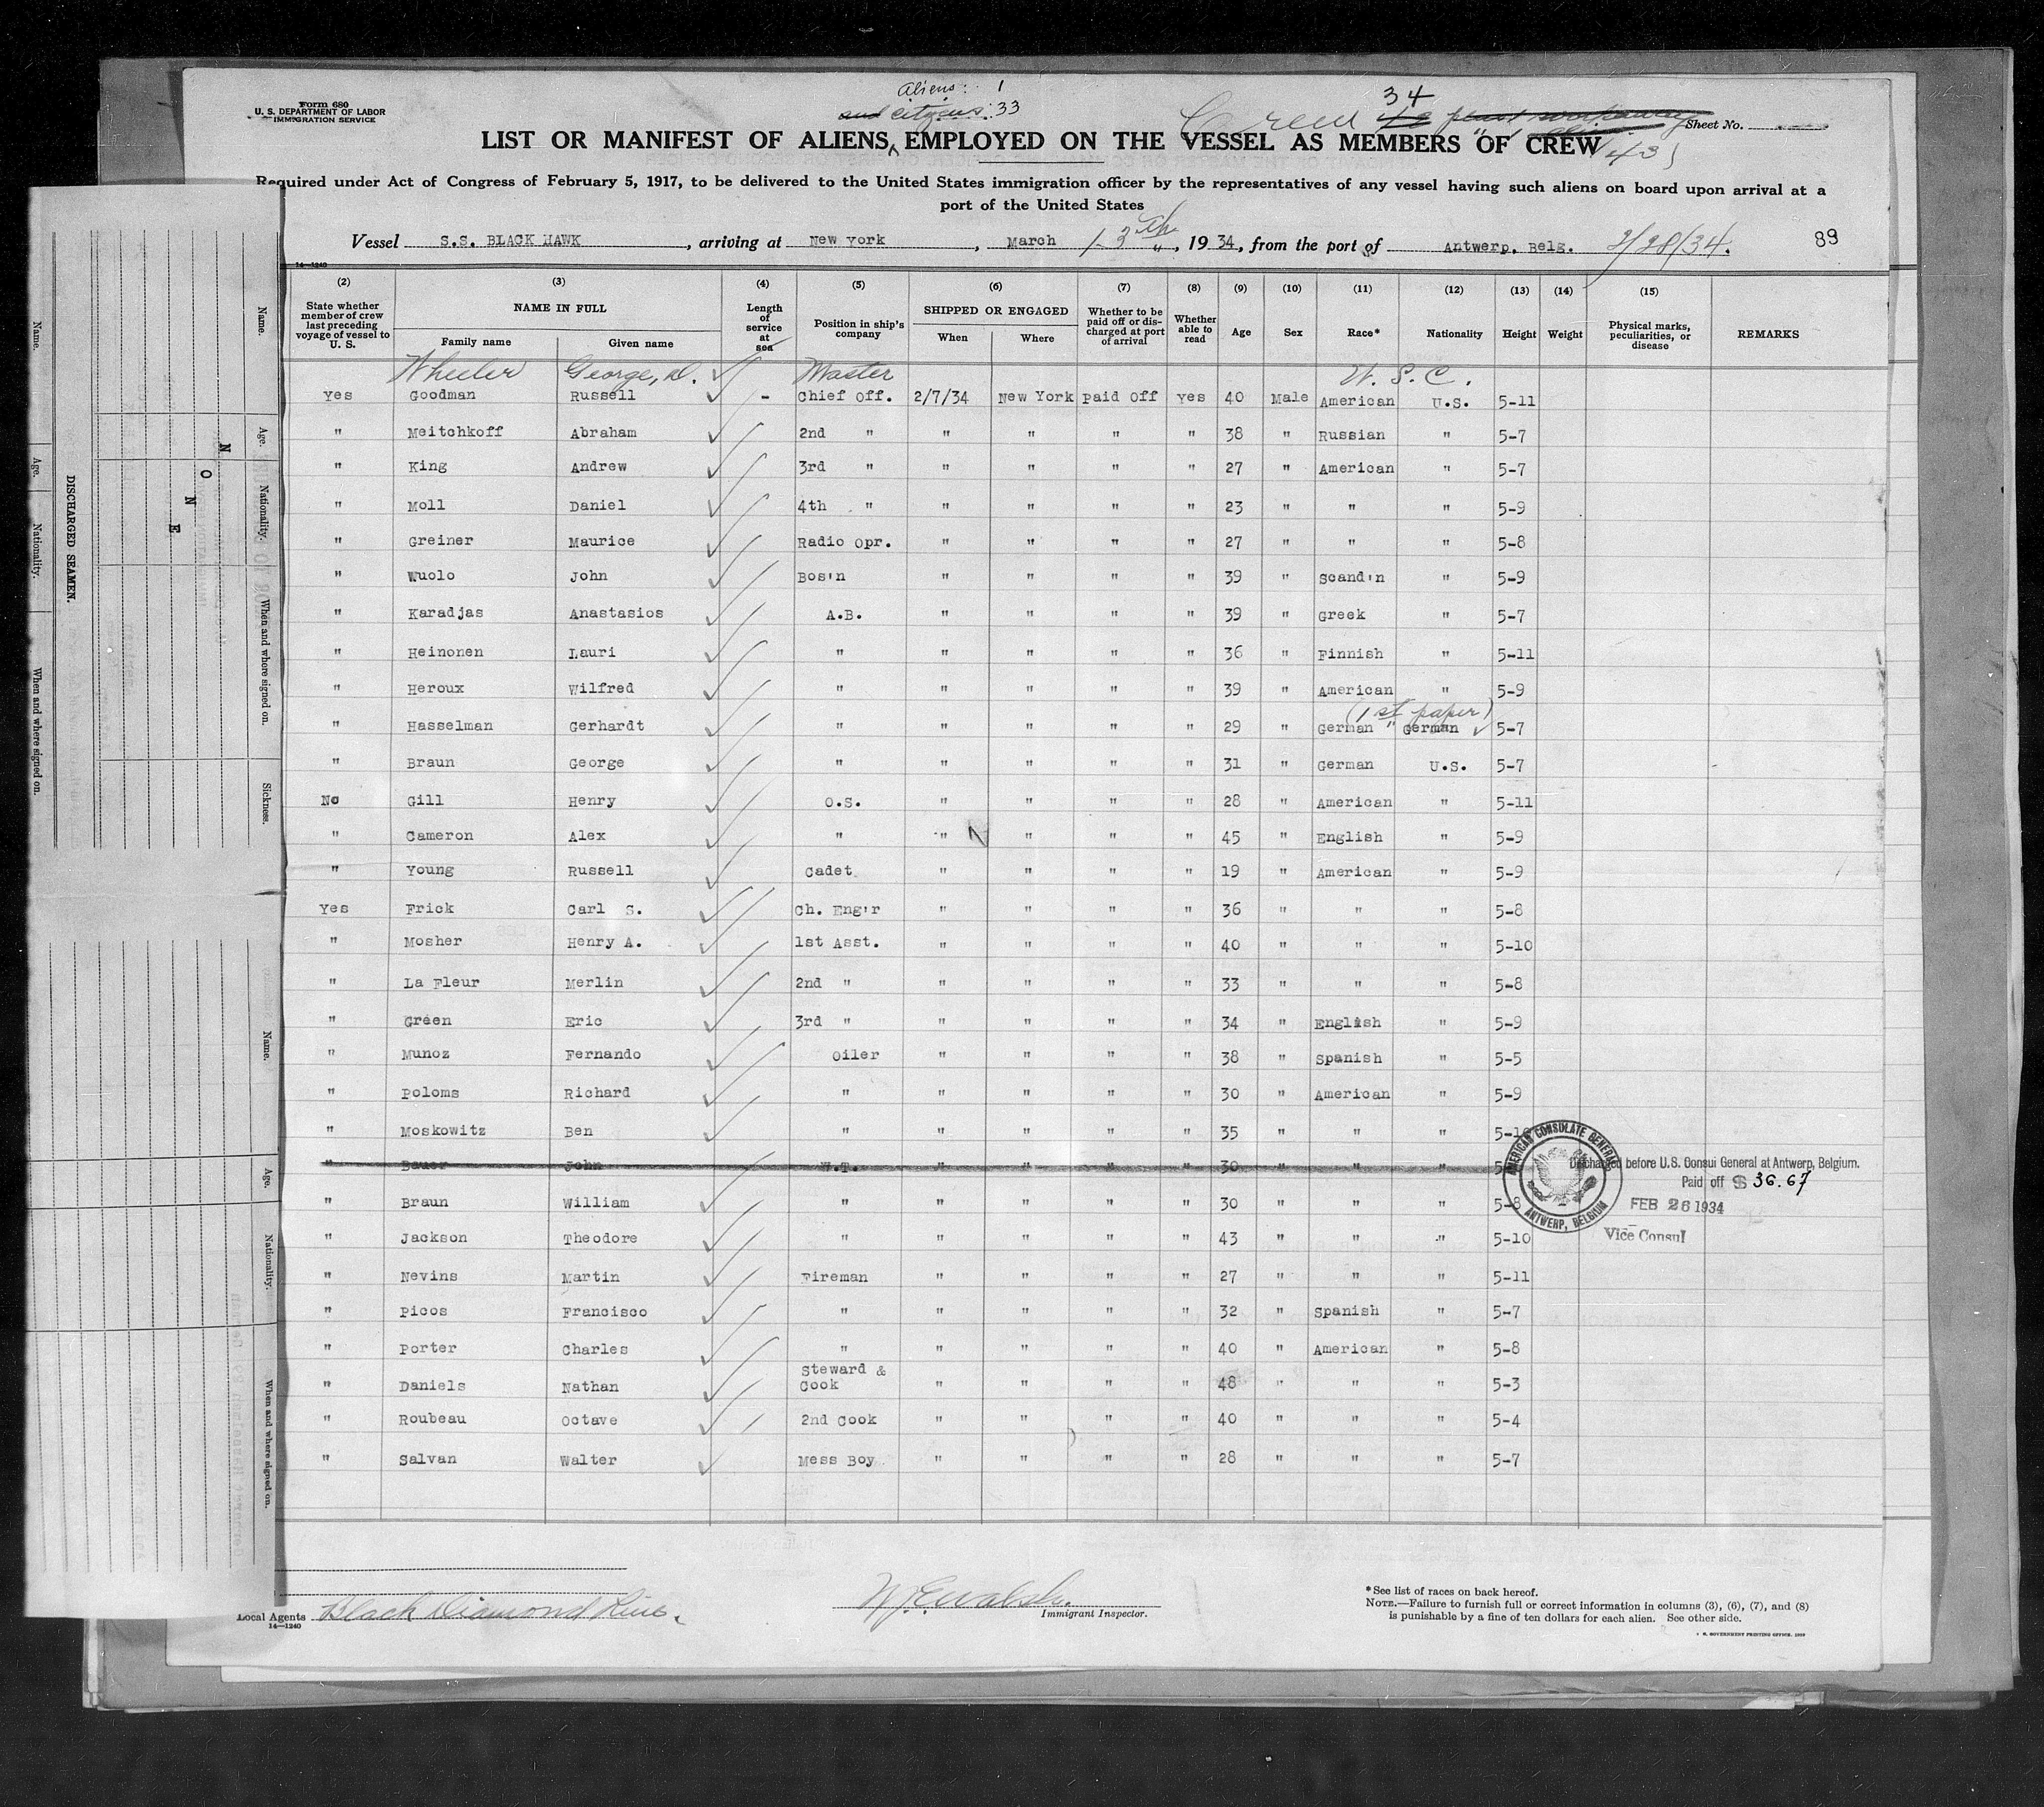 Form 680
U. S. DEPARTMENT OF LABOR
IMMIGRATION SERVICE
Aliens: 1
and citizens: 33
34
Sheet No.
LIST OR MANIFEST OF ALIENS EMPLOYED ON THE VESSEL AS MEMBERS OF CREW
Required under Act of Congress of February 5, 1917, to be delivered to the United States immigration officer by the representatives of any vessel having such aliens on board upon arrival at a
port of the United States
Vessel S.S. BLACK HAWK, arriving at New York, March 13th, 1934, from the port of Antwerp, Belg. 2/28/34.
89
14—1240
(2) (3) (4) (5) (6) (7) (8) (9) (10) (11) (12) (13) (14) (15)
State whether member of crew last preceding voyage of vessel to U. S.
NAME IN FULL
Family name Given name
Length of service at sea
Position in ship's company
SHIPPED OR ENGAGED
When Where
Whether to be paid off or discharged at port of arrival
Whether able to read
Age Sex Race* Nationality Height Weight
Physical marks, peculiarities, or disease
REMARKS
Wheeler George, D. Master U. S. C.
Yes Goodman Russell - Chief Off. 2/7/34 New York Paid Off Yes 40 Male American U.S. 5-11
" Meitchkoff Abraham 2nd " " " " " 38 " Russian " 5-7
" King Andrew 3rd " " " " " 27 " American " 5-7
" Moll Daniel 4th " " " " " 23 " " " 5-9
" Greiner Maurice Radio Opr. " " " " 27 " " " 5-8
" Wuolo John Bos'n " " " " 39 " Scand'n " 5-9
" Karadjas Anastasios A.B. " " " " 39 " Greek " 5-7
" Heinonen Lauri " " " " " 36 " Finnish " 5-11
" Heroux Wilfred " " " " " 39 " American " 5-9
(1st paper)
" Hasselman Gerhardt " " " " " 29 " German " German 5-7
" Braun George " " " " " 31 " German U.S. 5-7
No Gill Henry O.S. " " " " 28 " American " 5-11
" Cameron Alex " " " " " 45 " English " 5-9
" Young Russell Cadet " " " " 19 " American " 5-9
Yes Frick Carl S. Ch. Eng'r " " " " 36 " " " 5-8
" Mosher Henry A. 1st Asst. " " " " 40 " " " 5-10
" La Fleur Merlin 2nd " " " " " 33 " " " 5-8
" Green Eric 3rd " " " " " 34 " English " 5-9
" Munoz Fernando Oiler " " " " 38 " Spanish " 5-5
" Poloms Richard " " " " " 30 " American " 5-9
" Moskowitz Ben " " " " " 35 " " " 5-10
" Bauer John W.T. " " " " 30 " " " 5
" Braun William " " " " " 30 " " " 5-8
" Jackson Theodore " " " " " 43 " " " 5-10
" Nevins Martin Fireman " " " " 27 " " " 5-11
" Picos Francisco " " " " " 32 " Spanish " 5-7
" Porter Charles " " " " " 40 " American " 5-8
" Daniels Nathan Steward & Cook " " " " 48 " " " 5-3
" Roubeau Octave 2nd Cook " " " " 40 " " " 5-4
" Salvan Walter Mess Boy " " " " 28 " " " 5-7
AMERICAN CONSULATE GENERAL
ANTWERP, BELGIUM
Discharged before U.S. Consul General at Antwerp, Belgium.
Paid off $ 36.67
FEB 26 1934
Vice Consul
Local Agents Black Diamond Line.
14—1240
Immigrant Inspector.
*See list of races on back hereof.
NOTE.—Failure to furnish full or correct information in columns (3), (6), (7), and (8)
is punishable by a fine of ten dollars for each alien. See other side.
Name.
Age.
Nationality.
When and where signed on.
DISCHARGED SEAMEN.
NONE
Name.
Age.
Nationality.
When and where signed on.
Sickness.
Name.
Age.
Nationality.
When and where signed on.